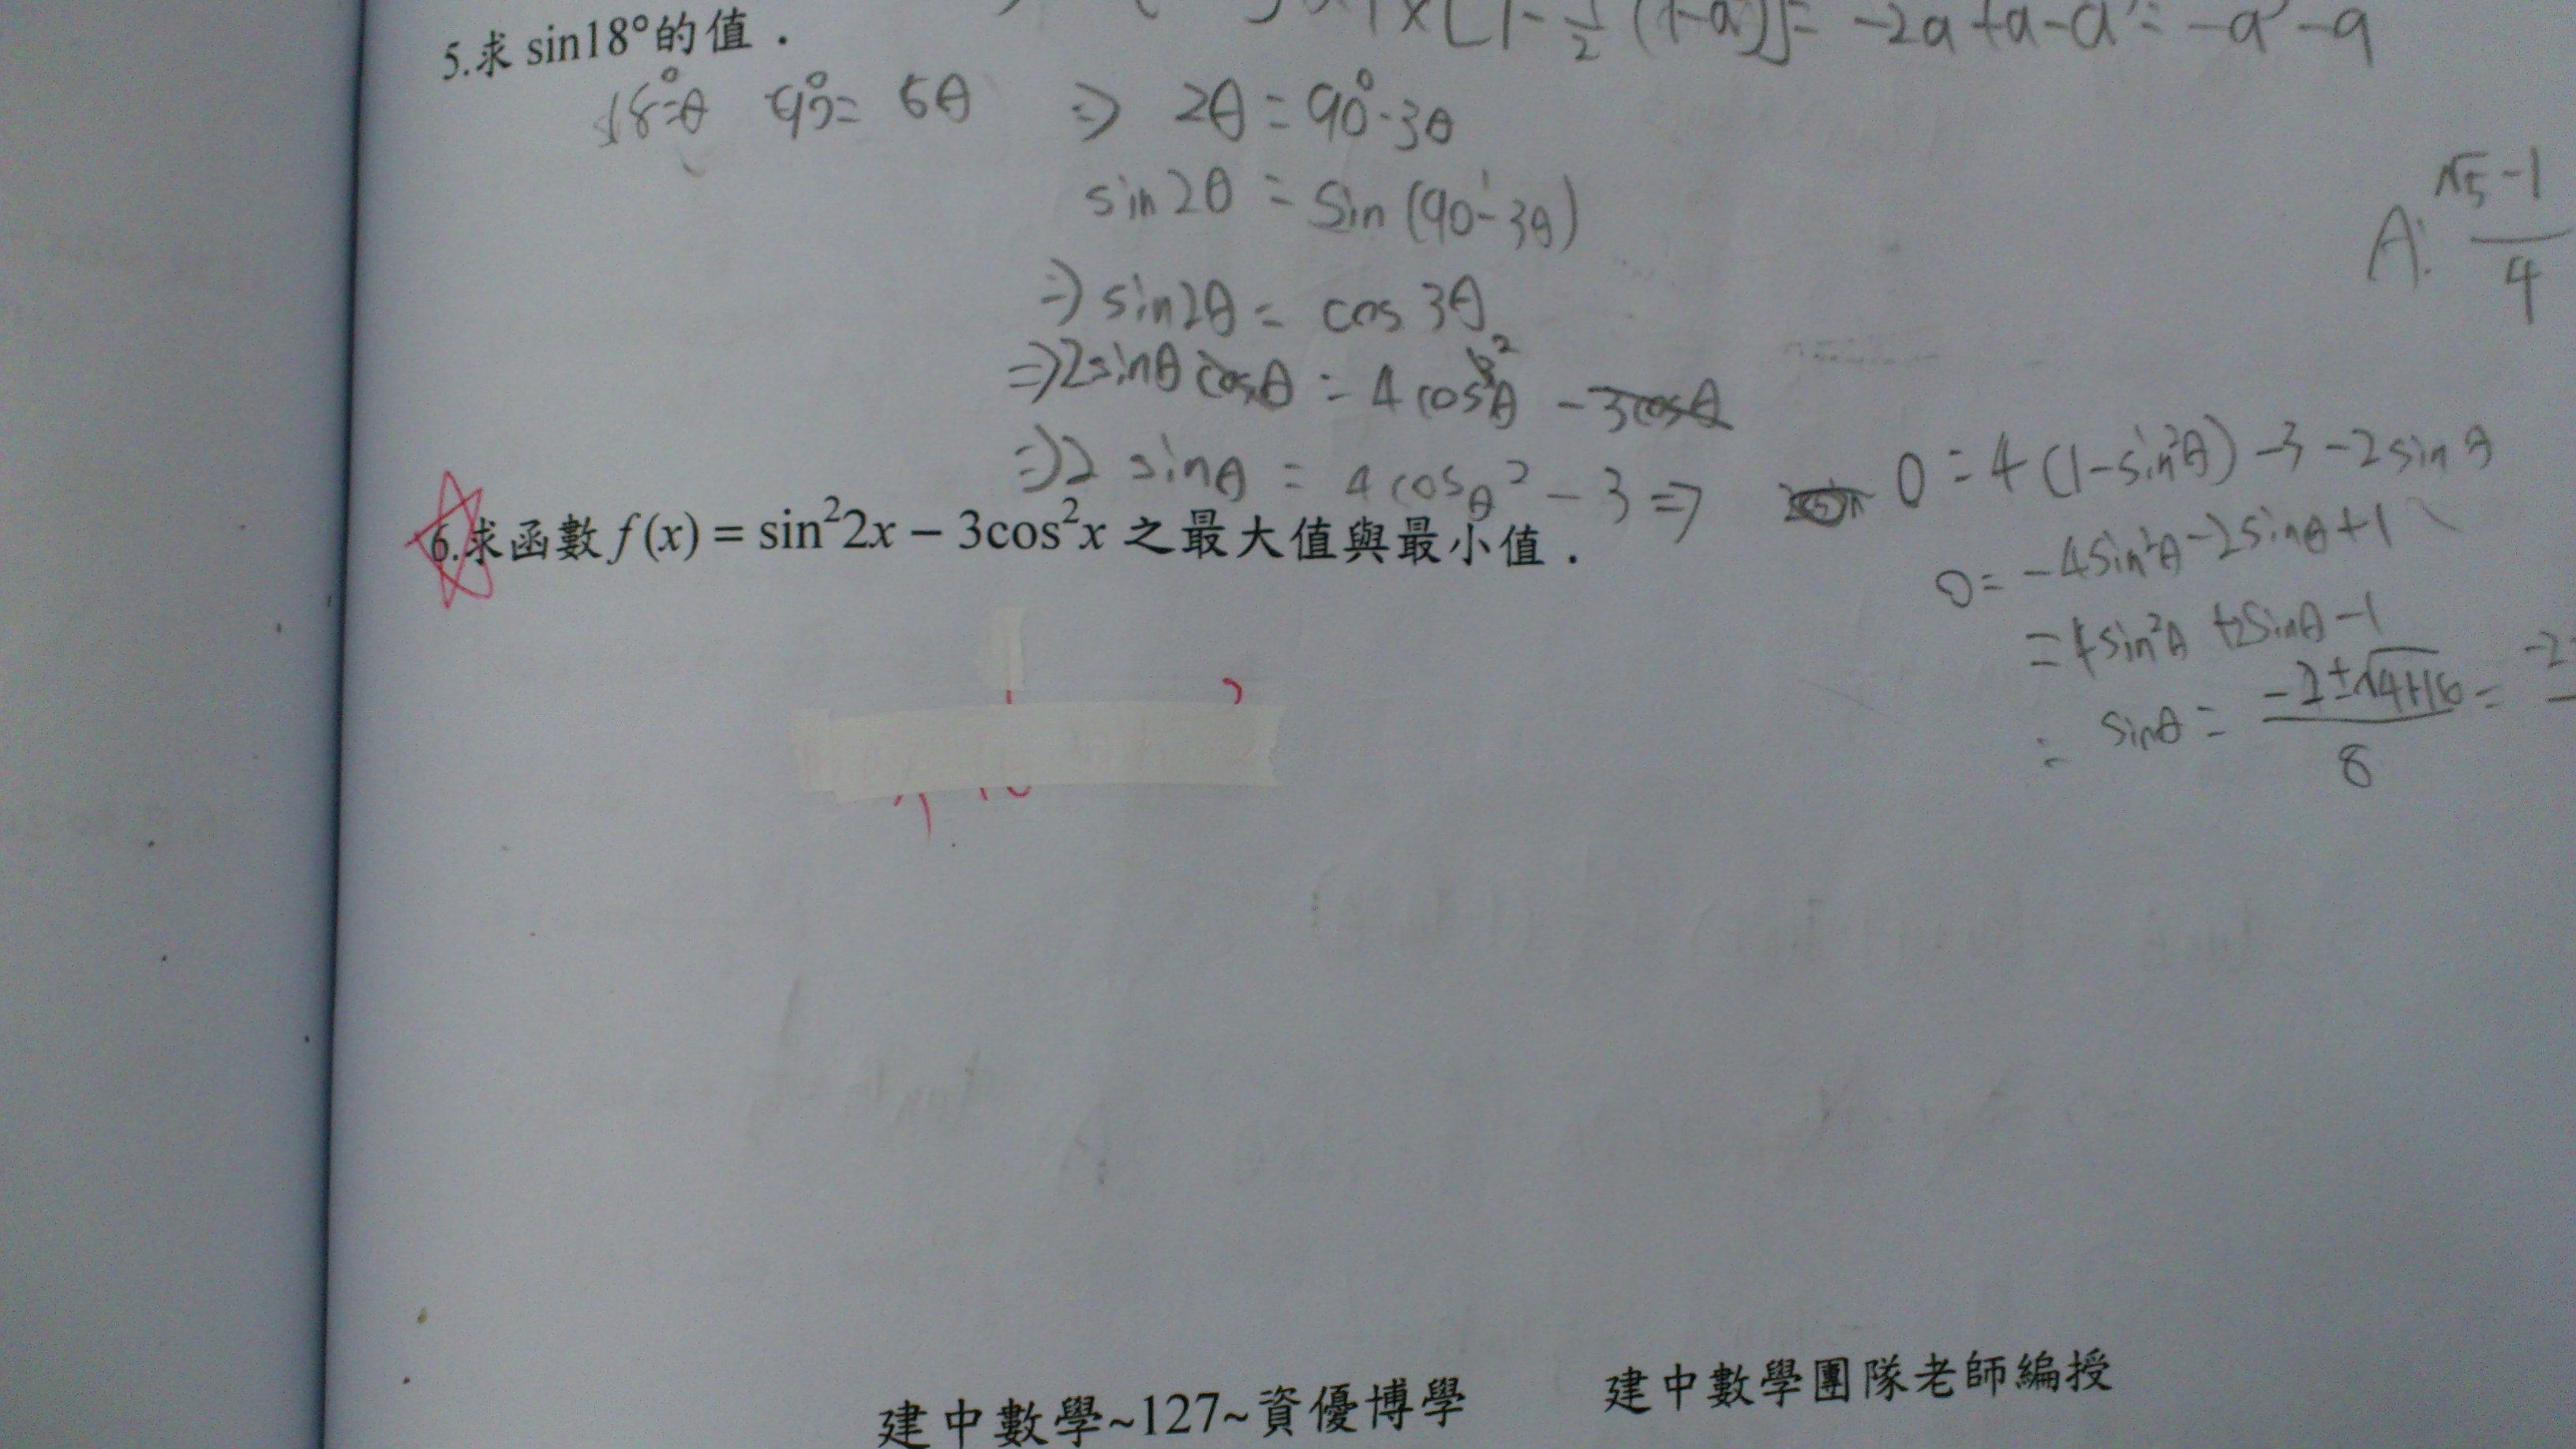 5.求 sin18°的值．
x[1-½(1-a)]= -2a+a-a²= -a²-a
18°=θ 90°= 5θ ⇒ 2θ = 90°-3θ
sin2θ = sin(90°-3θ)
⇒ sin2θ = cos 3θ
⇒ 2sinθ cosθ = 4cos³θ - 3cosθ
⇒ 2 sinθ = 4cosθ² - 3 ⇒
A: √5-1/4
0 = 4(1-sin²θ) -3 -2sinθ
0 = -4sin²θ -2sinθ +1
= 4sin²θ +2sinθ -1
= sinθ = -2±√4+16/8 = -2
6.求函數 f(x) = sin²2x − 3cos²x 之最大值與最小值．
建中數學~127~資優博學 建中數學團隊老師編授